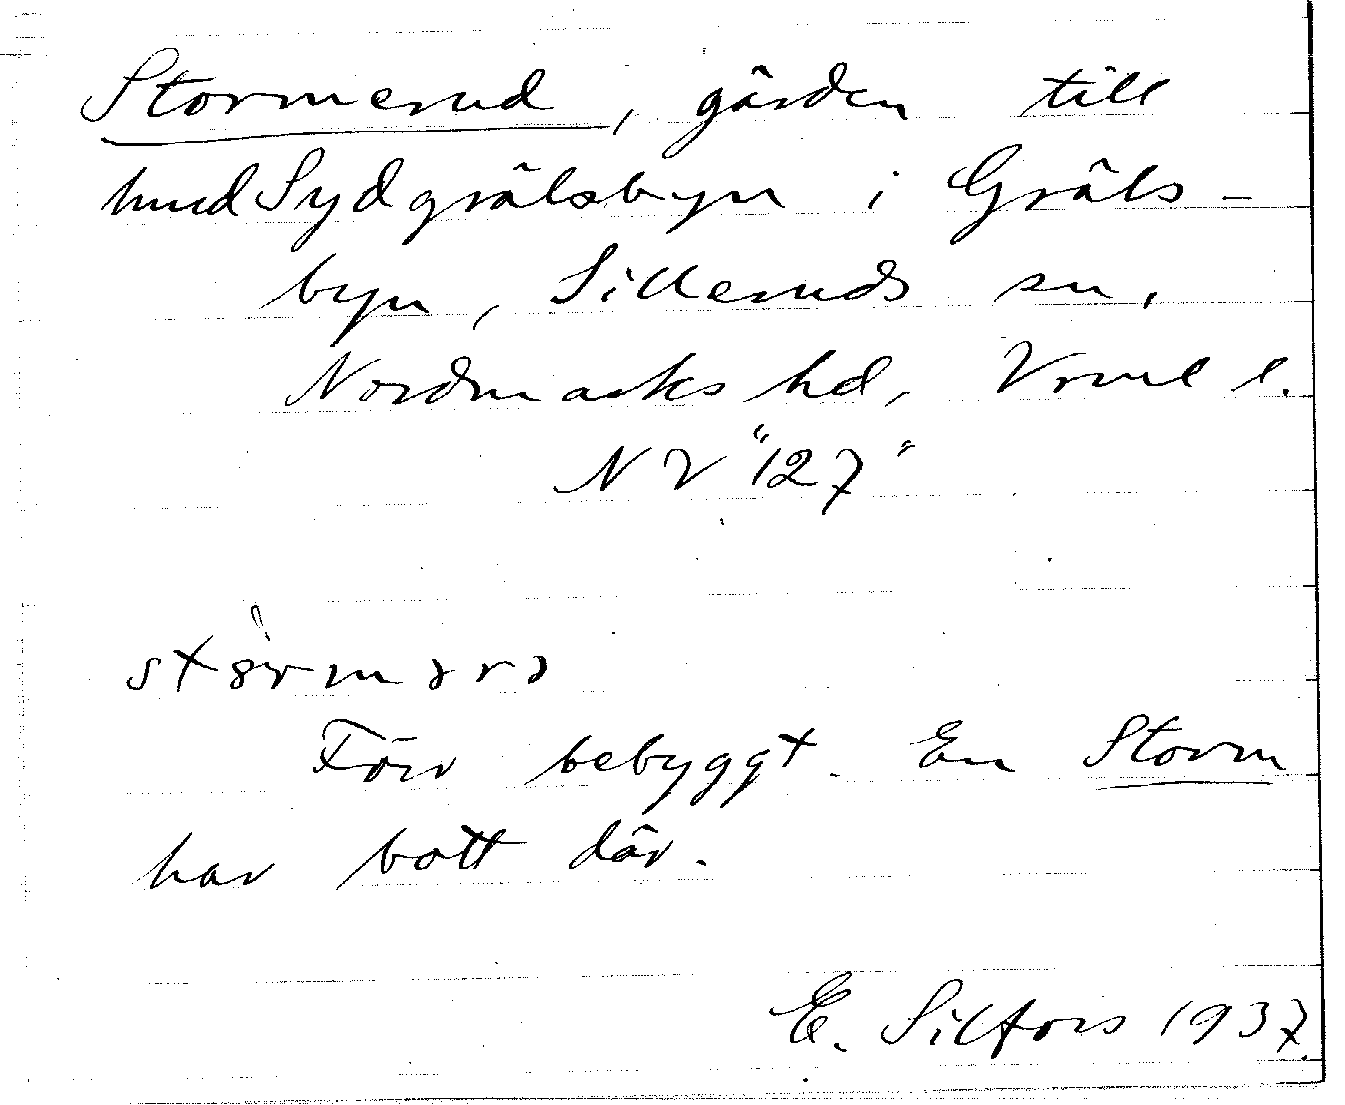 Stormerud, gärden till
hmd Sydgrälsbyn i Gräls-
byn, Silleruds sn,
Nordmarks hd, Vrml l.
NV "127"
Förr bebyggt. En Storm
har bott där.
E. Silfors 1937.